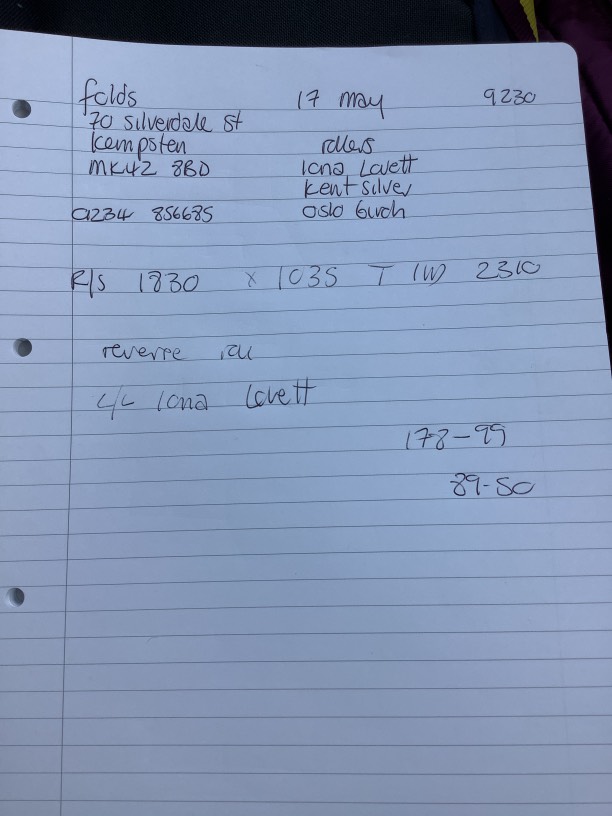 folds 17 may 9230
70 silverdale st
kempsten rollers
MK42 8BD Iona Lovett
kent silver
01234 856685 oslo birch
R/S 1830 x 1035 T (W) 2310
reverse roll
L/L Iona Lovett
178-99
89-50